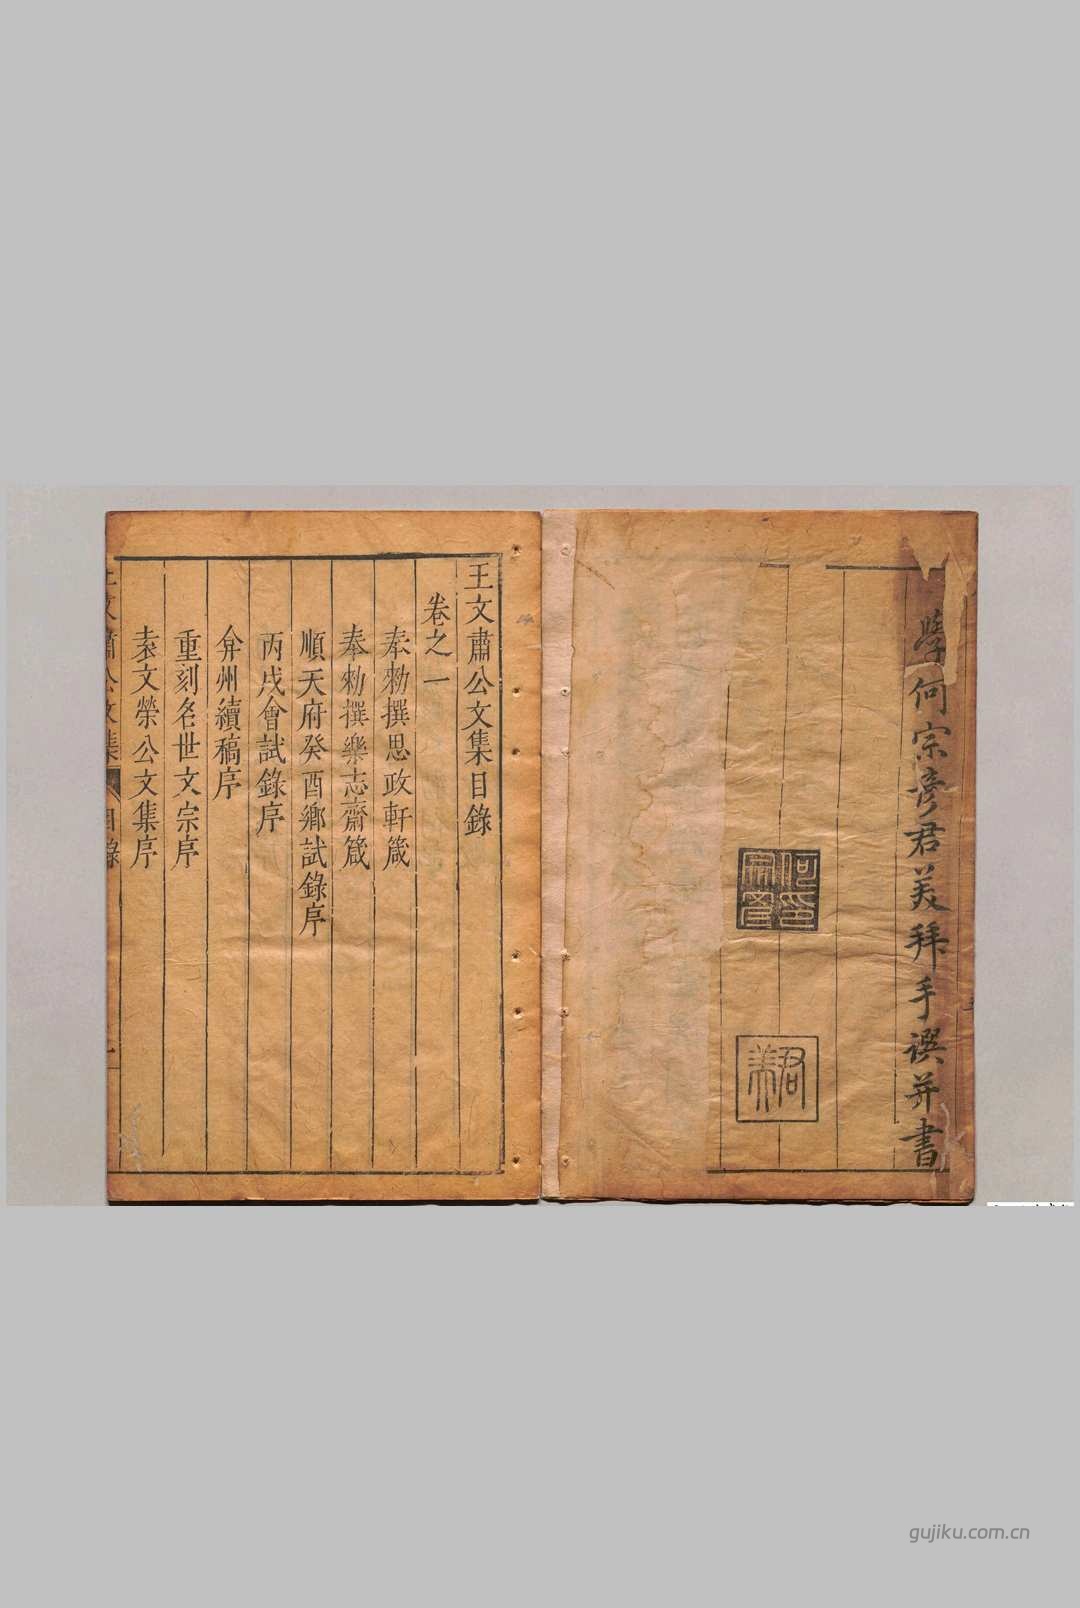 學何宗彥君美拜手譔并書
何宗彥印
君美
王文肅公文集目錄
卷之一
奉勑撰思政軒箴
奉勑撰樂志齋箴
順天府癸酉鄉試錄序
丙戌會試錄序
弇州續稿序
重刻名世文宗序
袁文榮公文集序
王文肅公文集 目錄 一
gujiku.com.cn